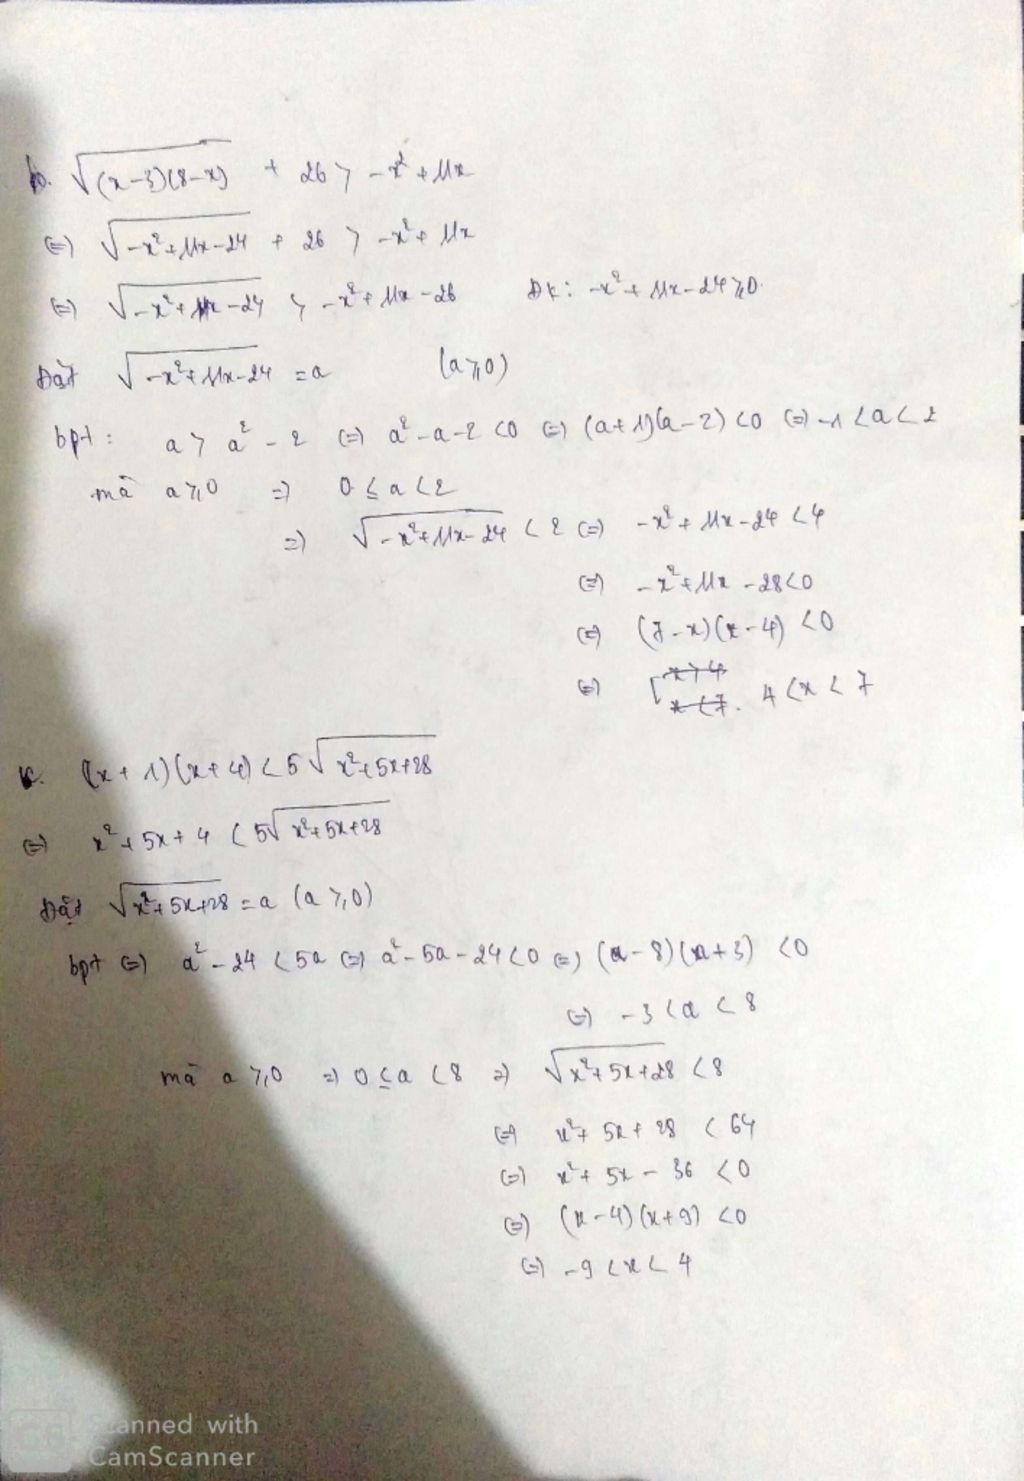 b. √((x-3)(8-x)) + 26 > -x² + 11x
(=) √(-x²+11x-24) + 26 > -x² + 11x
(=) √(-x²+11x-24) > -x² + 11x - 26 ĐK: -x² + 11x - 24 ≥ 0.
Đặt √(-x²+11x-24) = a (a ≥ 0)
bpt: a > a² - 2 (=) a² - a - 2 < 0 (=) (a+1)(a-2) < 0 (=) -1 < a < 2
mà a ≥ 0 => 0 ≤ a < 2
=> √(-x²+11x-24) < 2 (=) -x² + 11x - 24 < 4
(=) -x² + 11x - 28 < 0
(=) (7-x)(x-4) < 0
(=) [ x > 4 x < 7. 4 < x < 7
c. (x+1)(x+4) < 5√(x²+5x+28)
(=) x² + 5x + 4 < 5√(x²+5x+28)
Đặt √(x²+5x+28) = a (a ≥ 0)
bpt (=) a² - 24 < 5a (=) a² - 5a - 24 < 0 (=) (a-8)(a+3) < 0
(=) -3 < a < 8
mà a ≥ 0 => 0 ≤ a < 8 => √(x²+5x+28) < 8
(=) x² + 5x + 28 < 64
(=) x² + 5x - 36 < 0
(=) (x-4)(x+9) < 0
(=) -9 < x < 4
CS Scanned with
CamScanner